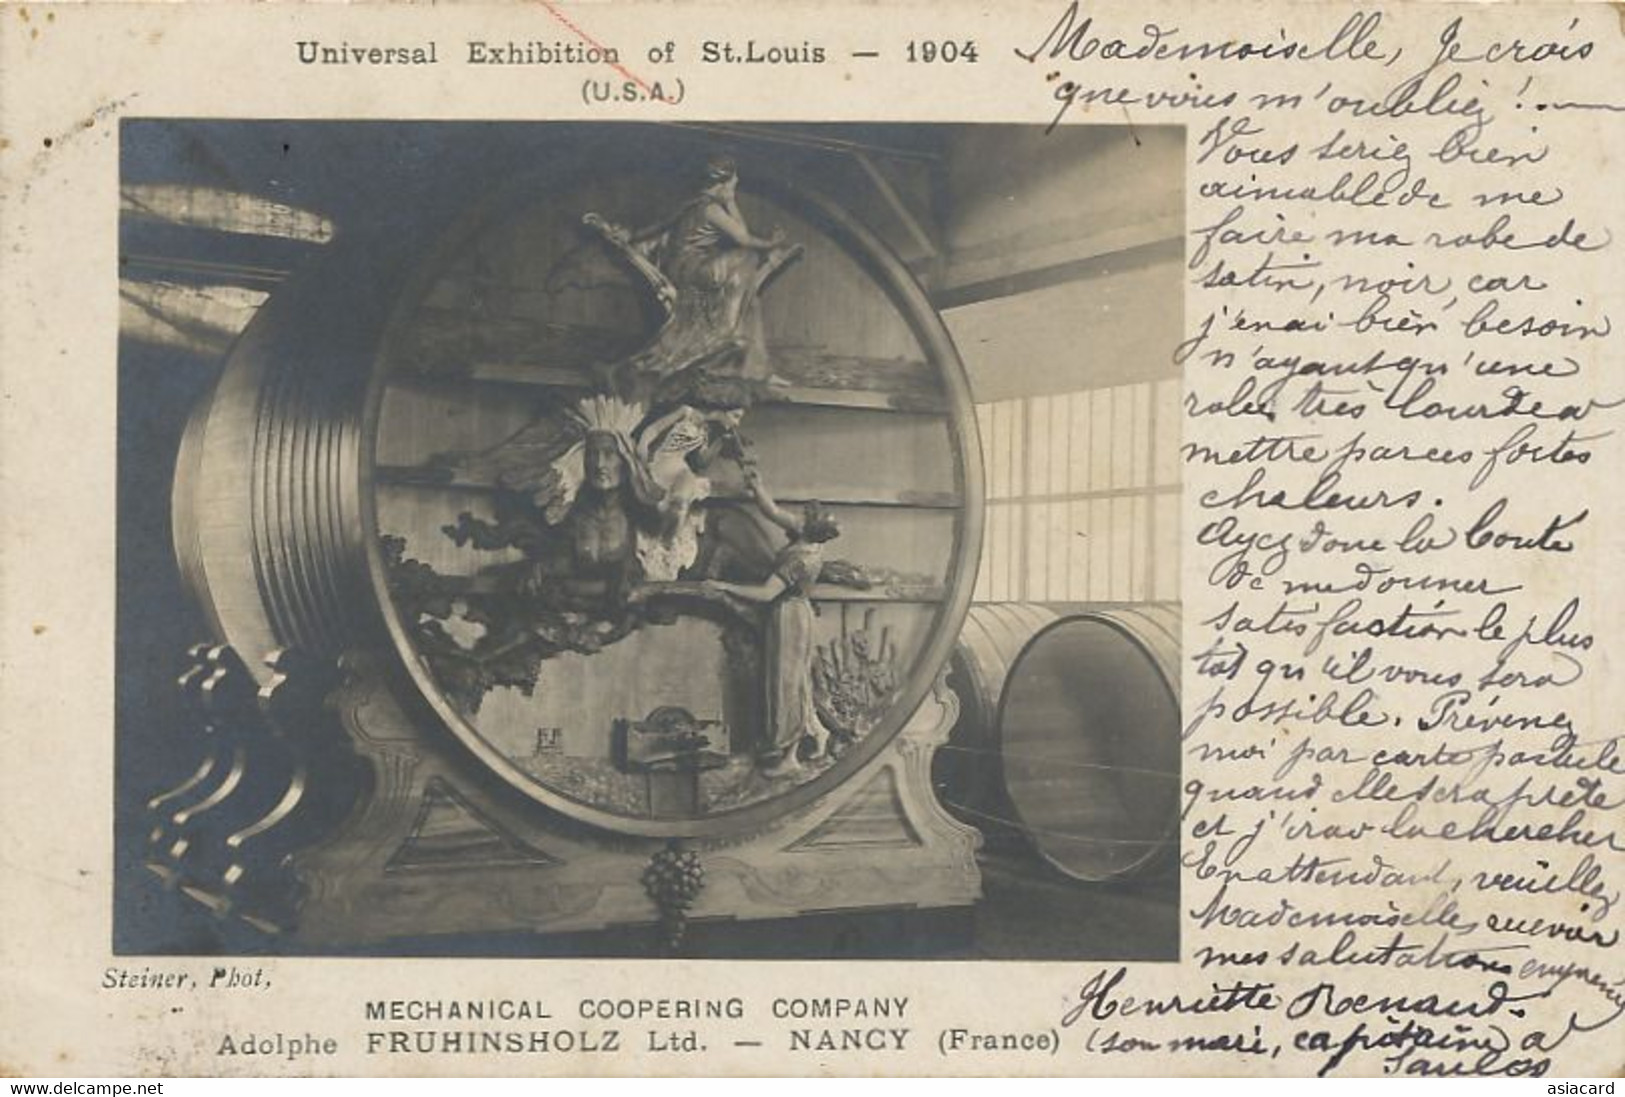 Universal Exhibition of St. Louis — 1904
(U.S.A.)
Mademoiselle, Je crois
que vous m'oubliez !.
Vous seriez bien
aimable de me
faire ma robe de
satin, noir, car
j'en ai bien besoin
n'ayant qu'une
robe, très lourde a
mettre par ces fortes
chaleurs.
Ayez donc la bonté
de me donner
satisfaction le plus
tôt qu'il vous sera
possible. Prévenez
moi par carte postale
quand elle sera prête
et j'irai la chercher
En attendant, veuillez
Mademoiselle, recevoir
mes salutations
Henriette Renaud.
(son mari, capitaine a
Steiner, Phot,
MECHANICAL COOPERING COMPANY
Adolphe FRUHINSHOLZ Ltd. — NANCY (France)
www.delcampe.net
asiacard